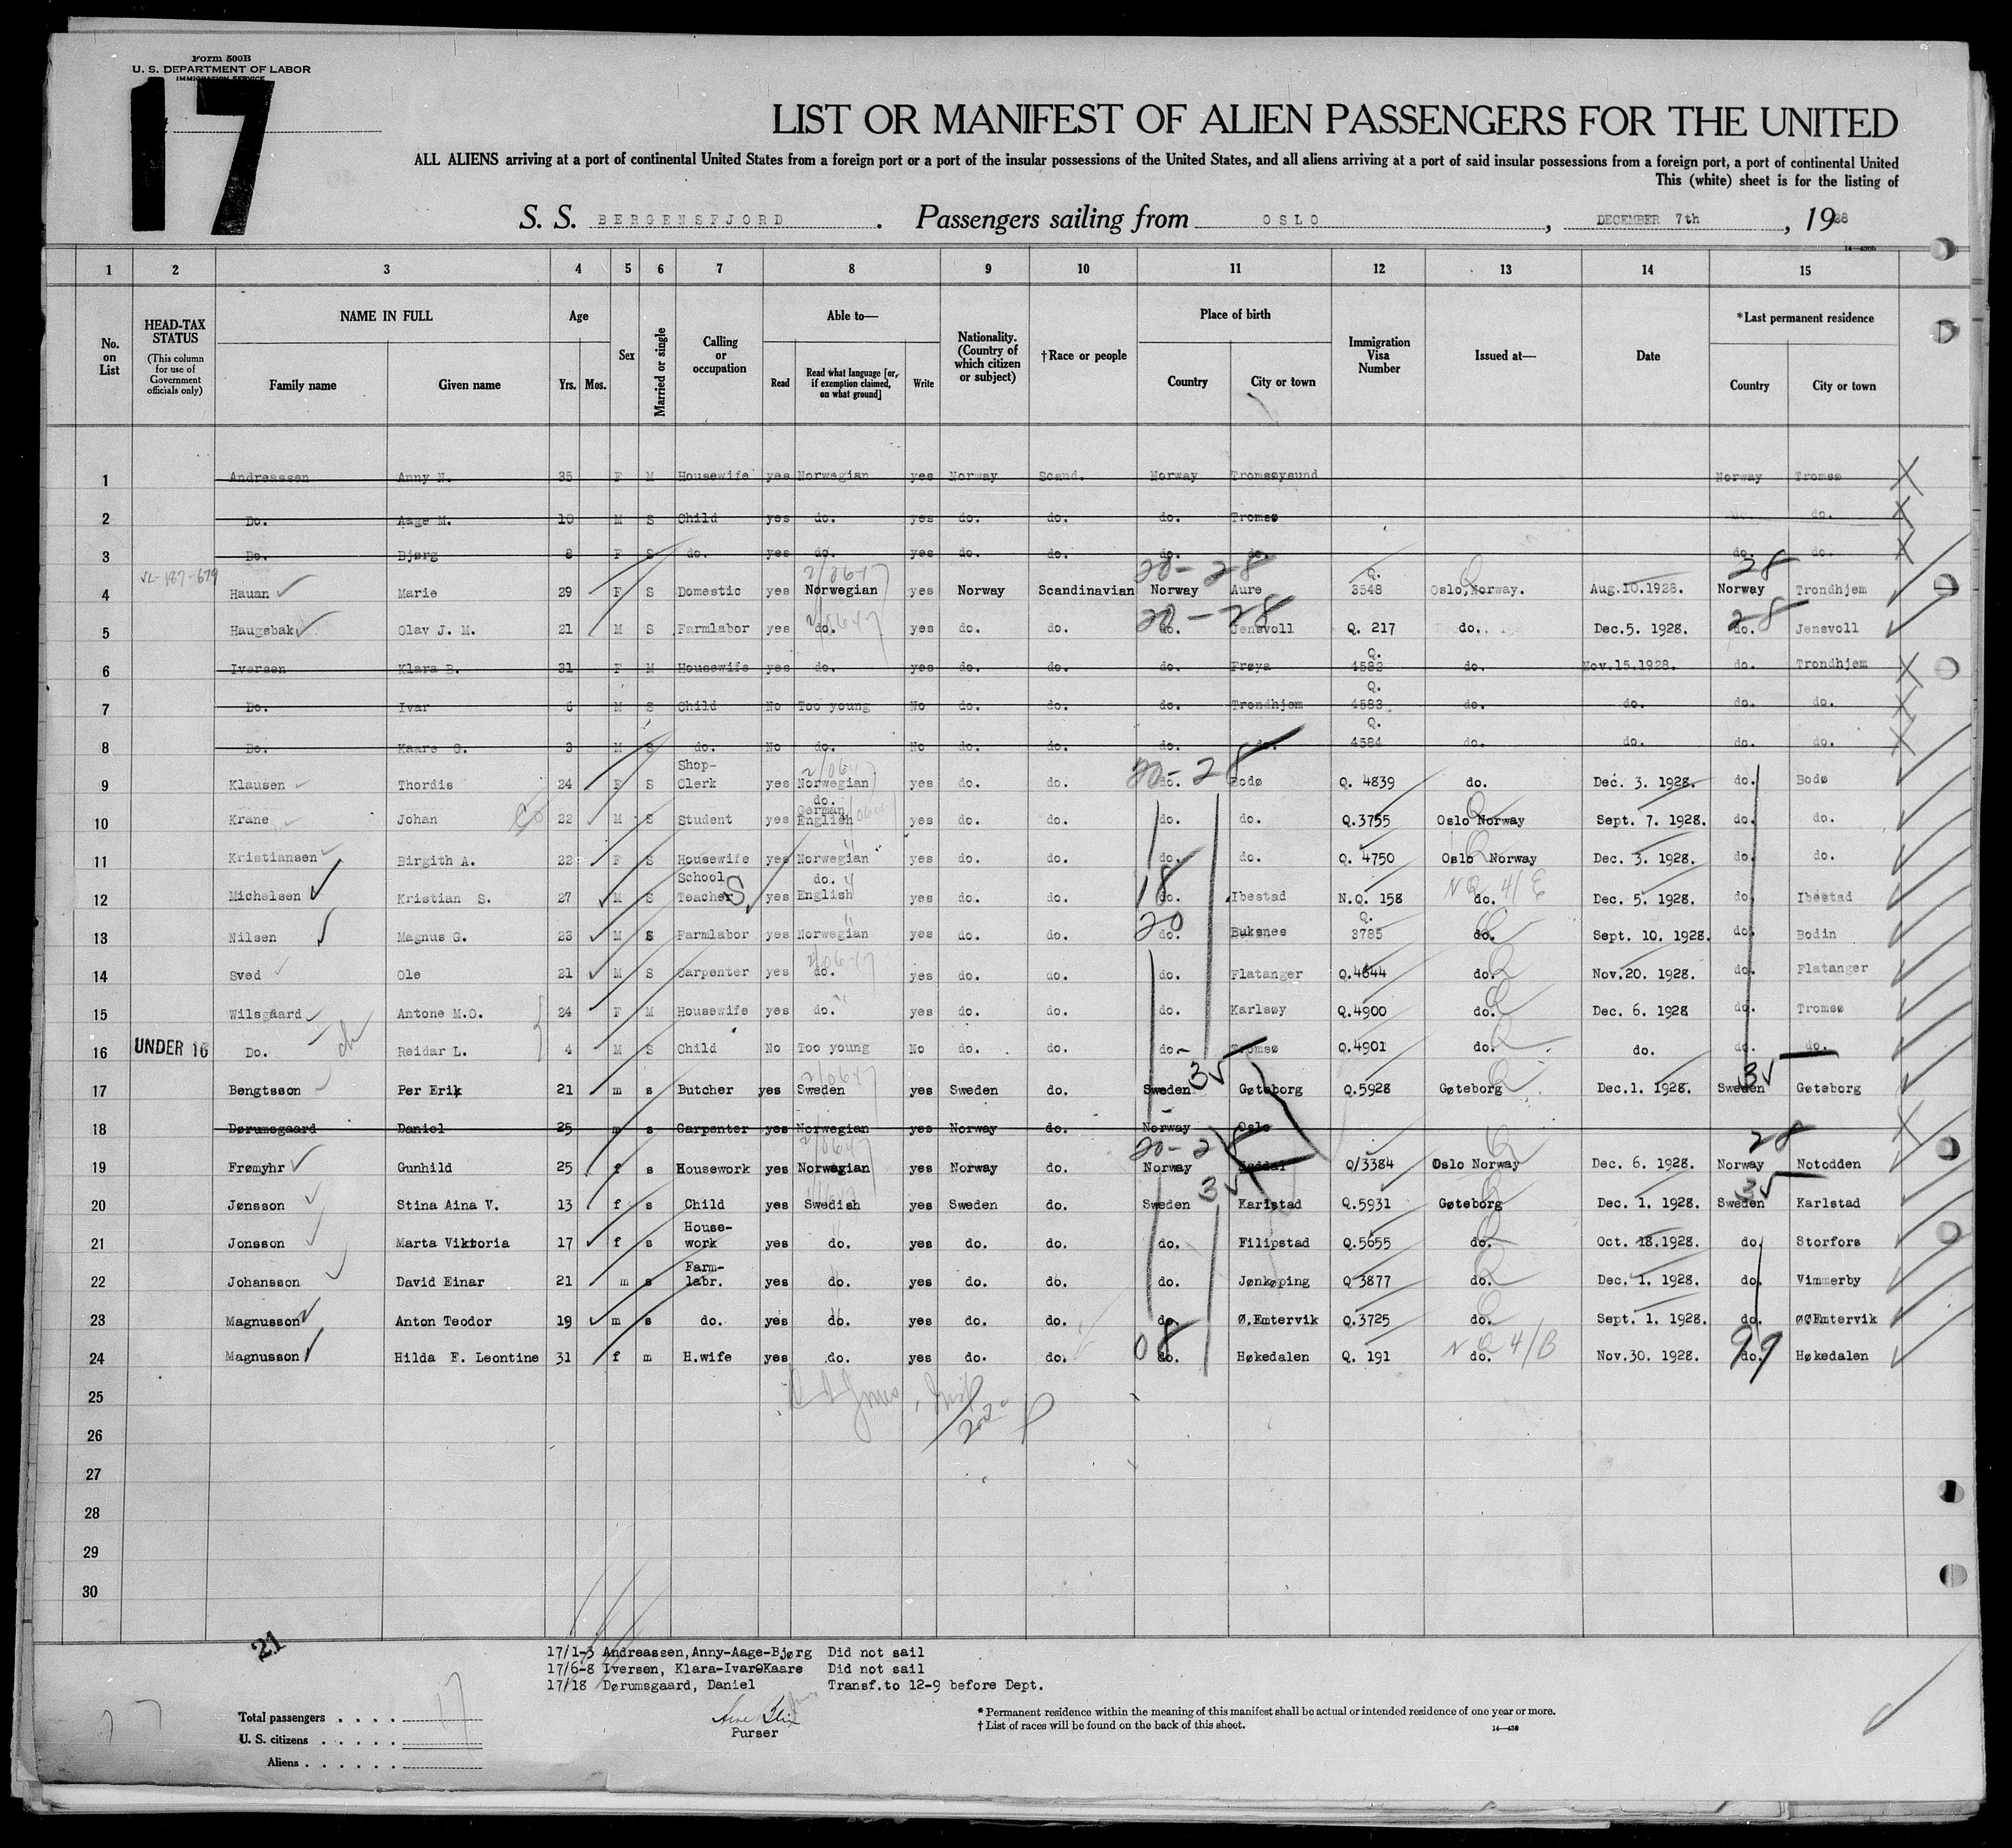 Form 500B
U. S. DEPARTMENT OF LABOR
IMMIGRATION SERVICE
17
LIST OR MANIFEST OF ALIEN PASSENGERS FOR THE UNITED
ALL ALIENS arriving at a port of continental United States from a foreign port or a port of the insular possessions of the United States, and all aliens arriving at a port of said insular possessions from a foreign port, a port of continental United
This (white) sheet is for the listing of
S. S. BERGENSFJORD . Passengers sailing from OSLO , DECEMBER 7th , 1928
1 2 3 4 5 6 7 8 9 10 11 12 13 14 15
No. on List
HEAD-TAX STATUS (This column for use of Government officials only)
NAME IN FULL Family name Given name
Age Yrs. Mos.
Sex
Married or single
Calling or occupation
Able to— Read Read what language [or, if exemption claimed, on what ground] Write
Nationality. (Country of which citizen or subject)
†Race or people
Place of birth Country City or town
Immigration Visa Number
Issued at—
Date
*Last permanent residence Country City or town
1 Andreassen Anny N. 35 F M Housewife yes Norwegian yes Norway Scand. Norway Tromsøysund Norway Tromsø X
2 Do. Aage M. 10 M S Child yes do. yes do. do. do. Tromsø do. do. X
3 Do. Bjørg 8 F S do. yes do. yes do. do. do. do. do. do. X
4 Hauan Marie 29 F S Domestic yes Norwegian yes Norway Scandinavian Norway Aure Q. 3548 Oslo, Norway. Aug.10.1928. Norway Trondhjem
20-28 28
5 Haugsbak Olav J. M. 21 M S Farmlabor yes do. yes do. do. do. Jensvoll Q. 217 do. Dec.5. 1928. do. Jensvoll
20-28 28
6 Iversen Klara B. 31 F M Housewife yes do. yes do. do. do. Frøya Q. 4582 do. Nov.15.1928. do. Trondhjem X
7 Do. Ivar 6 M S Child No Too young No do. do. do. Trondhjem Q. 4583 do. do. do. do. X
8 Do. Kaare G. 3 M S do. No do. No do. do. do. do. Q. 4584 do. do. do. do. X
9 Klausen Thordis 24 F S Shop-Clerk yes Norwegian yes do. do. do. Bodø Q. 4839 do. Dec. 3. 1928. do. Bodø
20-28
10 Krane Johan 22 M S Student yes do. German English yes do. do. do. do. Q.3755 Oslo Norway Sept. 7. 1928. do. do.
11 Kristiansen Birgith A. 22 F S Housewife yes Norwegian yes do. do. do. do. Q. 4750 Oslo Norway Dec. 3. 1928. do. do.
12 Michelsen Kristian S. 27 M S School Teacher S yes do. English yes do. do. do. Ibestad N.Q. 158 do. Dec. 5. 1928. do. Ibestad
18
13 Nilsen Magnus G. 23 M S Farmlabor yes Norwegian yes do. do. do. Buksnes Q. 3785 do. Sept. 10. 1928. do. Bodin
20
14 Sved Ole 21 M S Carpenter yes do. yes do. do. do. Flatanger Q.4644 do. Nov.20. 1928. do. Flatanger
15 Wilsgaard Antone M.O. 24 F M Housewife yes do. yes do. do. do. Karlsøy Q.4900 do. Dec. 6. 1928 do. Tromsø
16 UNDER 16 Do. Reidar L. 4 M S Child No Too young No do. do. do. Tromsø Q.4901 do. do. do. do.
17 Bengtsson Per Erik 21 m s Butcher yes Sweden yes Sweden do. Sweden Gøteborg Q.5928 Gøteborg Dec.1. 1928. Sweden Gøteborg
18 Dørumsgaard Daniel 25 m s Carpenter yes Norwegian yes Norway do. Norway Oslo X
19 Frømyhr Gunhild 25 f s Housework yes Norwegian yes Norway do. Norway Q/3384 Oslo Norway Dec. 6. 1928. Norway Notodden
20-28 28
20 Jønsson Stina Aina V. 13 f s Child yes Swedish yes Sweden do. Sweden Karlstad Q.5931 Gøteborg Dec. 1. 1928. Sweden Karlstad
21 Jonsson Marta Viktoria 17 f s House-work yes do. yes do. do. do. Filipstad Q.5655 do. Oct. 18.1928. do. Storfors
22 Johansson David Einar 21 m s Farm-labr. yes do. yes do. do. do. Jønkøping Q 3877 do. Dec. 1. 1928. do. Vimmerby
23 Magnusson Anton Teodor 19 m s do. yes do. yes do. do. do. Ø.Emtervik Q.3725 do. Sept. 1. 1928. do. ØØEmtervik
24 Magnusson Hilda E. Leontine 31 f m H.wife yes do. yes do. do. do. Høkedalen Q. 191 do. Nov.30. 1928. do. Høkedalen
08 99
25
26
27
28
29
30
21
17/1-3 Andreassen,Anny-Aage-Bjørg Did not sail
17/6-8 Iversen, Klara-Ivar&Kaare Did not sail
17/18 Dørumsgaard, Daniel Transf.to 12-9 before Dept.
Purser
Total passengers . . . . 17
U. S. citizens . . . . .
Aliens . . . . . .
* Permanent residence within the meaning of this manifest shall be actual or intended residence of one year or more.
† List of races will be found on the back of this sheet.